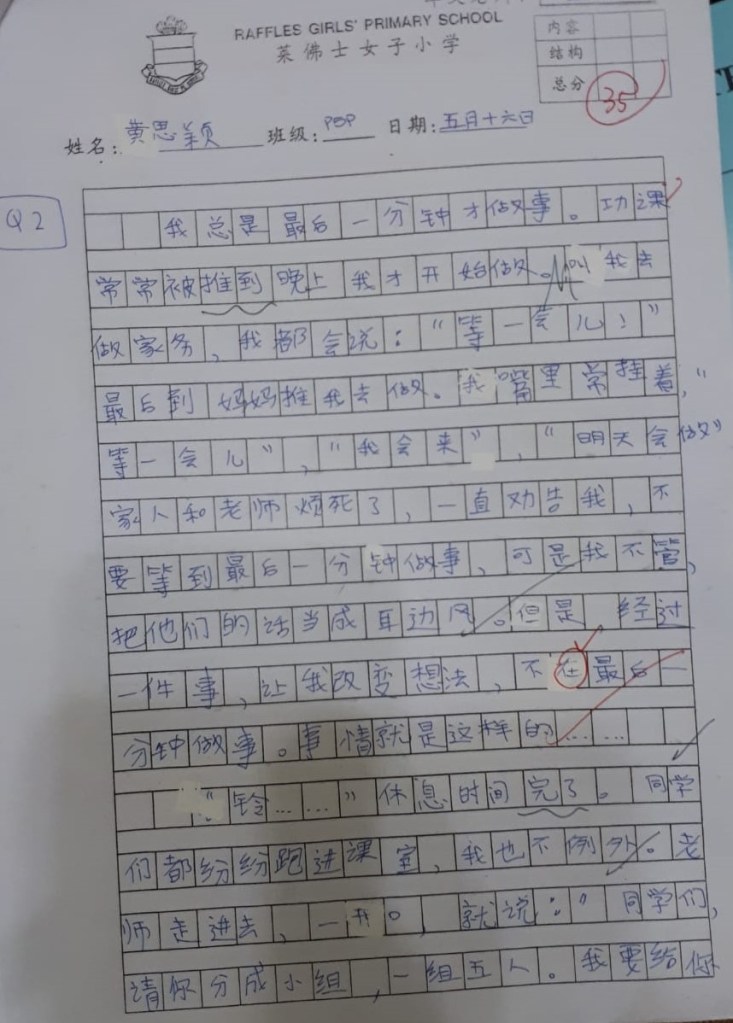 RAFFLES GIRLS' PRIMARY SCHOOL
莱佛士女子小学
内容
结构
总分
35
姓名：黄思颖 班级：P5P 日期：五月十六日
Q2
我总是最后一分钟才做事。功课
常常被推到晚上我才开始做。叫我去
做家务，我都会说："等一会儿！"
最后到妈妈推我去做。我嘴里常挂着，"
等一会儿"，"我会来"，"明天会做"
家人和老师烦死了，一直劝告我，不
要等到最后一分钟做事，可是我不管，
把他们的话当成耳边风。但是，经过
一件事，让我改变想法，不在最后一
分钟做事。事情就是这样的……
"铃……"休息时间完了。同学
们都纷纷跑进课室，我也不例外。老
师走进去，一开口，就说："同学们，
请你分成小组，一组五人。我要给你